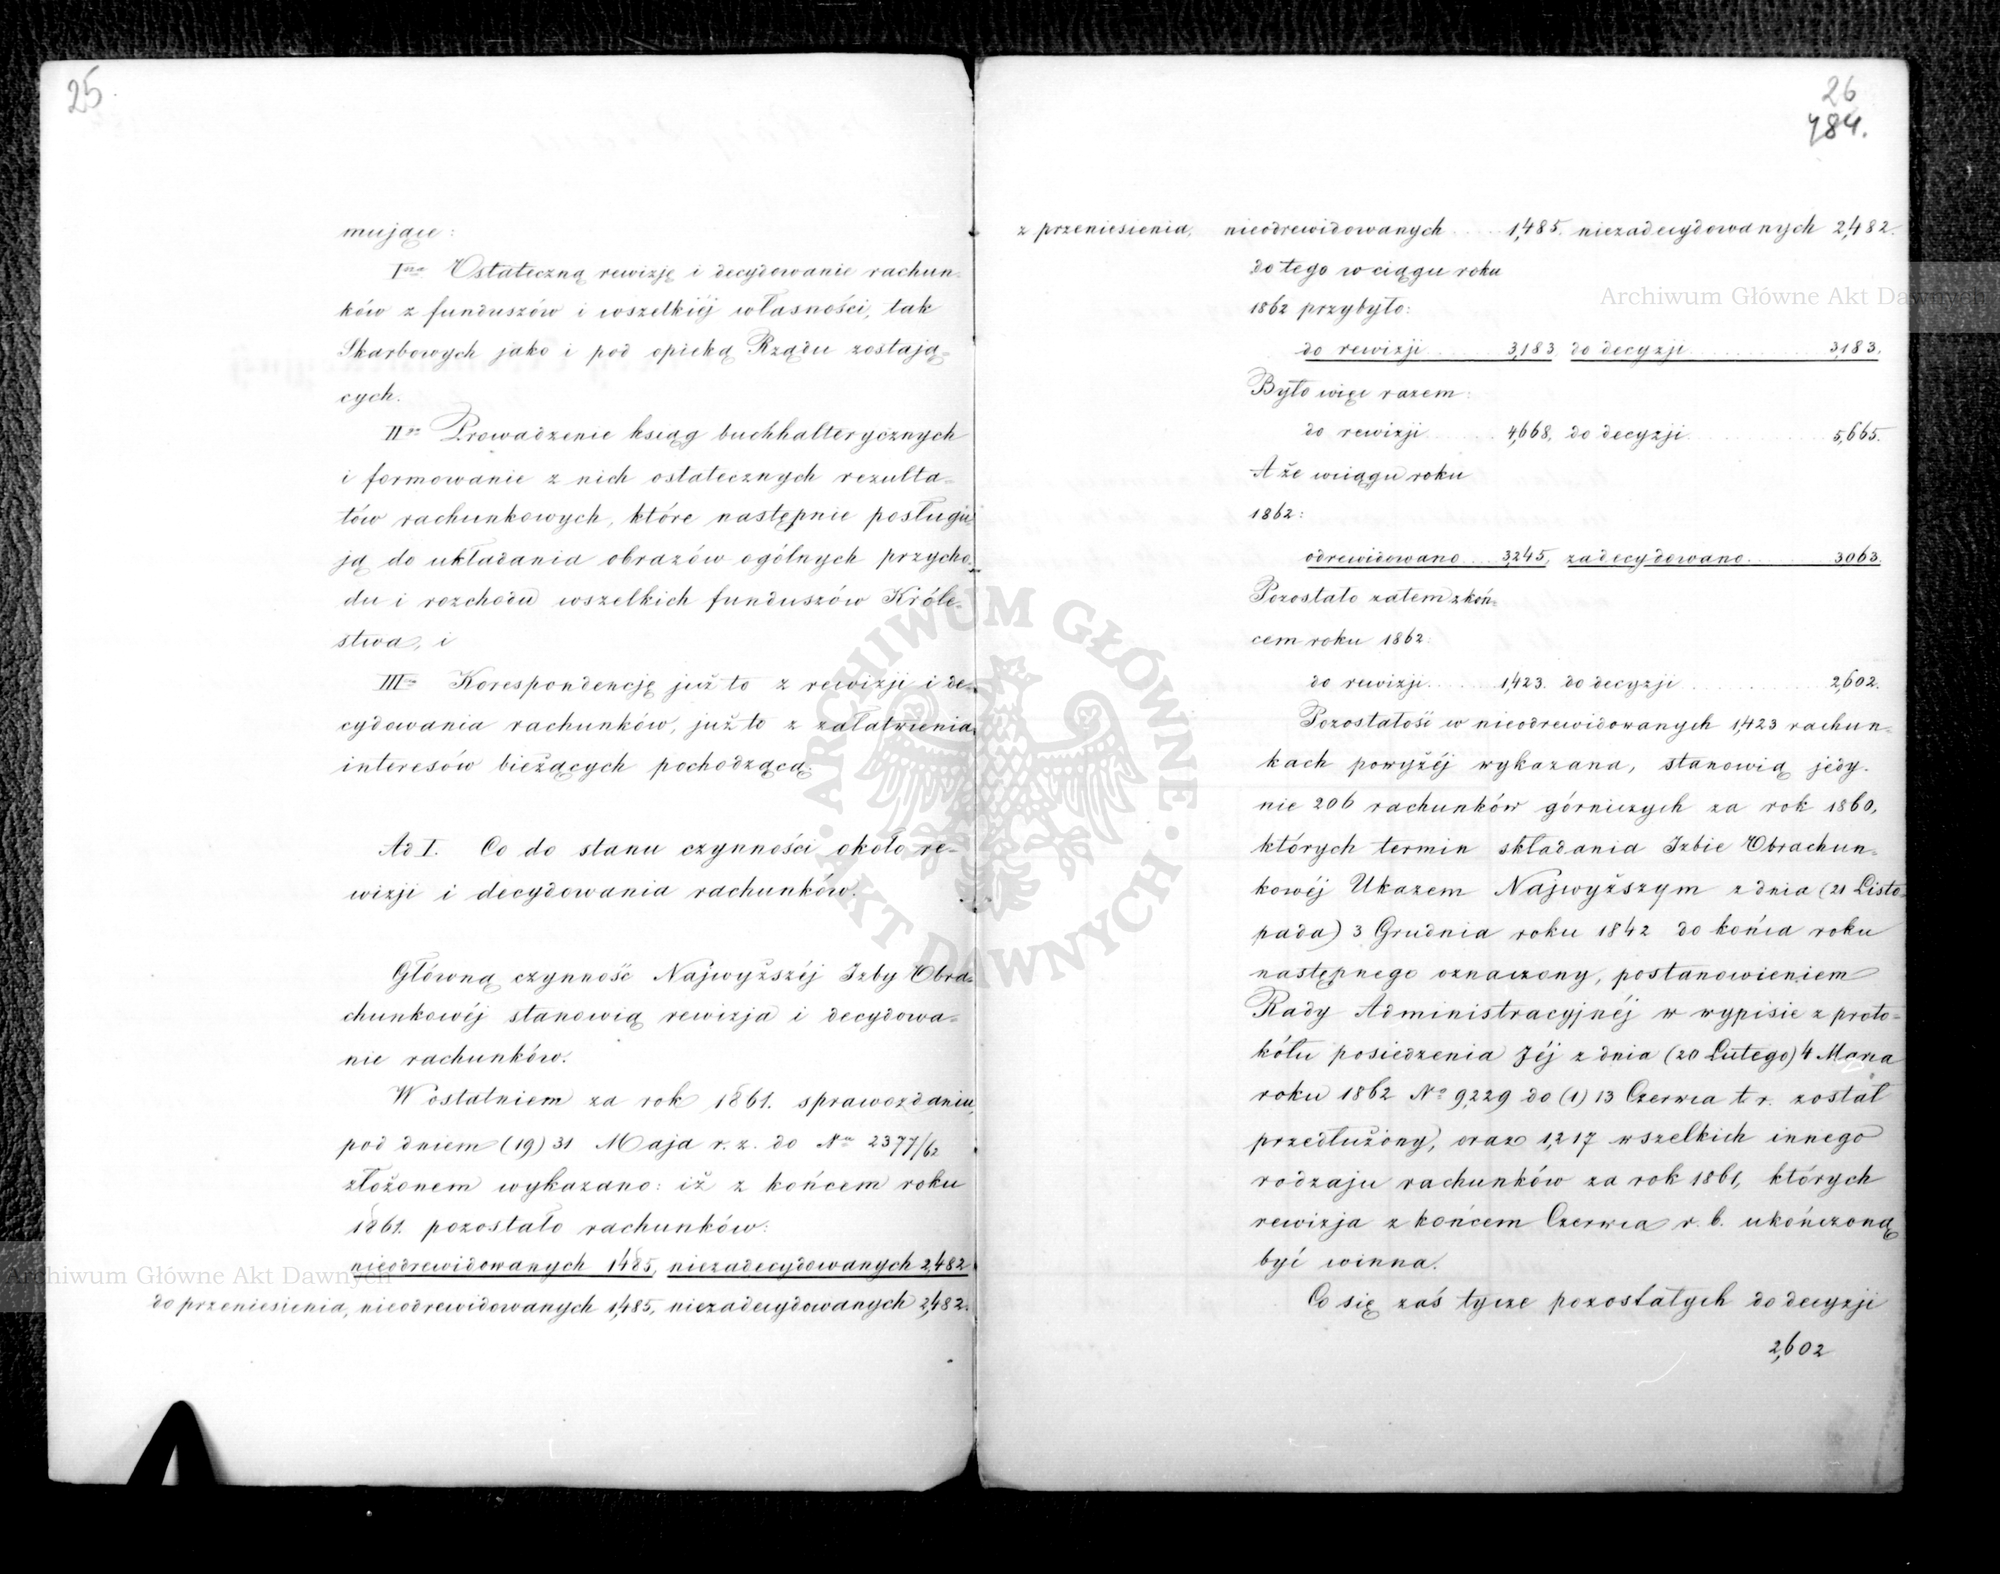 25
mujące:
I<sup>mo</sup> Ostateczną rewizję i decydowanie rachun=
ków z funduszów i wszelkiéj własności, tak
Skarbowych jako i pod opieką Rządu zostają=
cych.
II<sup>do</sup> Prowadzenie ksiąg buchhalterycznych
i formowanie z nich ostatecznych rezulta=
tów rachunkowych, które następnie posługu=
ją do układania obrazów ogólnych przycho=
du i rozchodu wszelkich funduszów Króle=
stwa, i
III<sup>tio</sup> Korespondencję już to z rewizji i de=
cydowania rachunków, już to z załatwienia
interesów bieżących pochodzącą.
Ad I. Co do stanu czynności około re=
wizji i decydowania rachunków.
Główną czynność Najwyższéj Izby Obra=
chunkowéj stanowią rewizja i decydowa=
nie rachunków.
W ostatniem za rok 1861. sprawozdaniu,
pod dniem (19) 31 Maja r. z. do N<sup>ru</sup> 2377/62
złożonem wykazano: iż z końcem roku
1861. pozostało rachunków:
nieodrewidowanych 1,485, niezadecydowanych 2,482
do przeniesienia, nieodrewidowanych 1,485, niezadecydowanych 2,482.
26
484.
z przeniesienia, nieodrewidowanych .... 1,485. niezadecydowanych 2,482.
do tego w ciągu roku
1862 przybyło:
do rewizji ...... 3,183, do decyzji ............ 3,183.
Było więc razem:
do rewizji ...... 4,668, do decyzji ............ 5,665.
A że w ciągu roku
1862:
odrewidowano .... 3,245, zadecydowano ........ 3063.
Pozostało zatem z koń=
cem roku 1862:
do rewizji ...... 1,423. do decyzji ............ 2,602.
Pozostałość w nieodrewidowanych 1,423 rachun=
kach powyżéj wykazana, stanowią jedy=
nie 206 rachunków górniczych za rok 1860,
których termin składania Izbie Obrachun=
kowéj Ukazem Najwyższym z dnia (21 Listo=
pada) 3 Grudnia roku 1842 do końca roku
następnego oznaczony, postanowieniem
Rady Administracyjnéj w wypisie z proto=
kółu posiedzenia Jéj z dnia (20 Lutego) 4 Marca
roku 1862 N<sup>o</sup> 9,229 do (1) 13 Czerwca t. r. został
przedłużony, oraz 1,217 wszelkich innego
rodzaju rachunków za rok 1861, których
rewizja z końcem Czerwca r. b. ukończoną
być winna.
Co się zaś tycze pozostałych do decyzji
2,602
Archiwum Główne Akt Dawnych
Archiwum Główne Akt Dawnych
ARCHIWUM GŁÓWNE AKT DAWNYCH